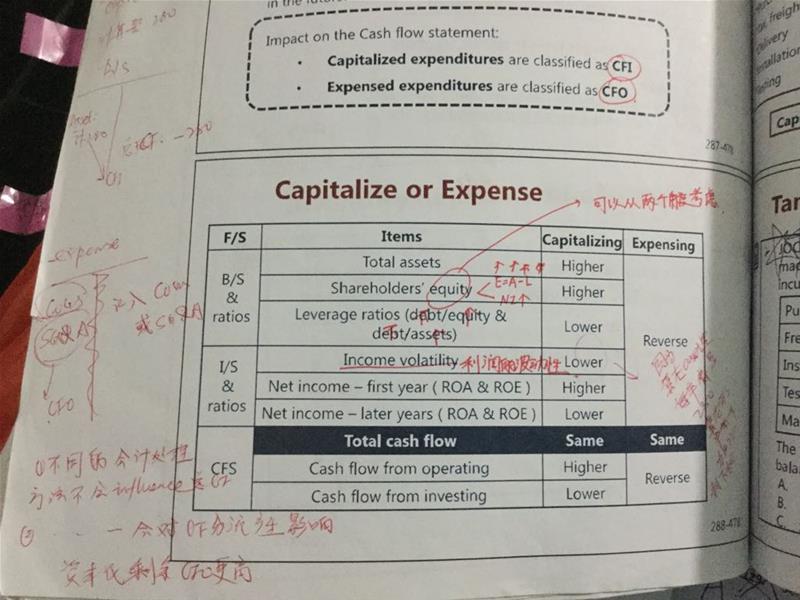 in the future
Impact on the Cash flow statement:
• Capitalized expenditures are classified as CFI
• Expensed expenditures are classified as CFO
287-478
B/S
CFI
Capitalize or Expense
可以从两个角度考虑
F/S Items Capitalizing Expensing
B/S & ratios
Total assets Higher
Shareholders' equity E=A-L NI↑ Higher
Leverage ratios (debt/equity & debt/assets) Lower
Reverse
I/S & ratios
Income volatility Lower
Net income – first year ( ROA & ROE ) Higher
Net income – later years ( ROA & ROE ) Lower
CFS
Total cash flow Same Same
Cash flow from operating Higher
Cash flow from investing Lower
Reverse
288-478
expense
COGS
SG&A
计入 COGS
或 SG&A
CFO
①不同的会计处理
方法不会influence总CF
② 会对CF分流产生影响
freight
Delivery
Installation
Testing
Cap
Tan
IOC
mac
incu
Pu
Fre
Ins
Tes
Ma
The
bala
A.
B.
C.